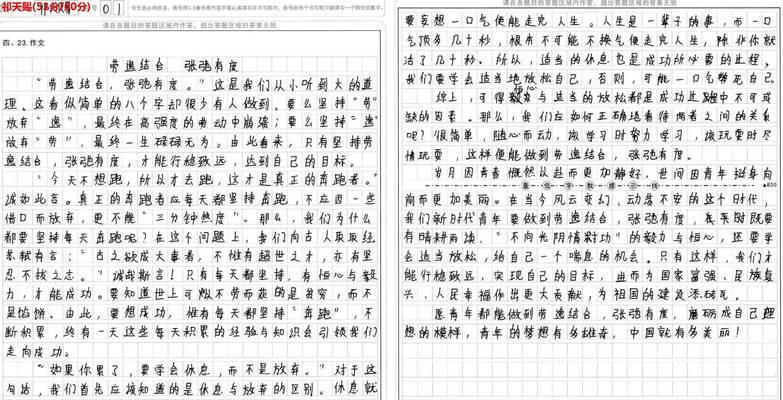 祁天赐(51分/60分)
01
请在各题目的答题区域内作答，超出答题区域的答案无效
四、23.作文
劳逸结合 张弛有度
“劳逸结合，张弛有度。”这是我们从小听到大的道
理。这看似简单的八个字却很少有人做到。要么坚持“劳”
放弃“逸”，最终在高强度的劳动中崩溃；要么坚持“逸”
放弃“劳”，最终一生碌碌无为。由此看来，只有坚持劳
逸结合，张弛有度，才能行稳致远，达到自己的目标。
“今天不想跑，所以才去跑，这才是真正的奔跑者。”
诚如此言。真正的奔跑者应每天都坚持奔跑，不应因一些
借口而放弃，更不能“三分钟热度”。那么，我们为什么
都要坚持每天奔跑呢？在这个问题上，我们向古人取取经
苏轼有言：“古之欲成大事者，不惟有超世之才，亦有坚
忍不拔之志。”诚哉斯言！只有每天都坚持，有恒心与毅
力，才能成功。要知道世上可以不劳而获的是贫穷，而不
是馅饼。由此，要想成功，惟有每天都坚持“奔跑”，不
断积累，终有一天这些每天积累的经验与知识会引领我们
走向成功。
“如果你累了，要学会休息，而不是放弃。”对于这
句话，我们首先应该知道的是休息与放弃的区别。休息就
请在各题目的答题区域内作答，超出答题区域的答案无效
要妄想一口气便能走完人生。人生是一辈子的事，而一口
气顶多几十秒，根本不可能不换气便走完人生，除非你就
活了几十秒。所以，适当的休息也是成功所必要的止想，
我们要学会适当地放松自己，否则，可能一口气憋死自己。
恒心
综上，可得毅力与适当的放松都是成功之路中不可或
缺的因素。那么，我们应如何正确地看待两者之间的关系
呢？很简单，随心而动，该学习时努力学习，该玩耍时尽
情玩耍，这样便能做到劳逸结合，张弛有度。
岁月因青春慨然以赴而更加静好，世间因青年挺身向
800
前而更加美丽。在当今风云变幻、动荡不安的这个时代，
我们新时代青年要做到劳逸结合，张弛有度，
有晴耕雨读，“不向光阴惰寸功”的毅力与恒心，还要学
会适当放松，给自己一个喘息的机会。只有这样，我们才
能行稳致远，实现自己的目标，进而为国家富强、民族复
兴、人民幸福作出更大贡献，为祖国的建设添砖瓦。
愿青年都能做到劳逸结合，张弛有度，磨砺成自己理
想的模样，青年的梦想有多雄奇，中国就有多美丽！